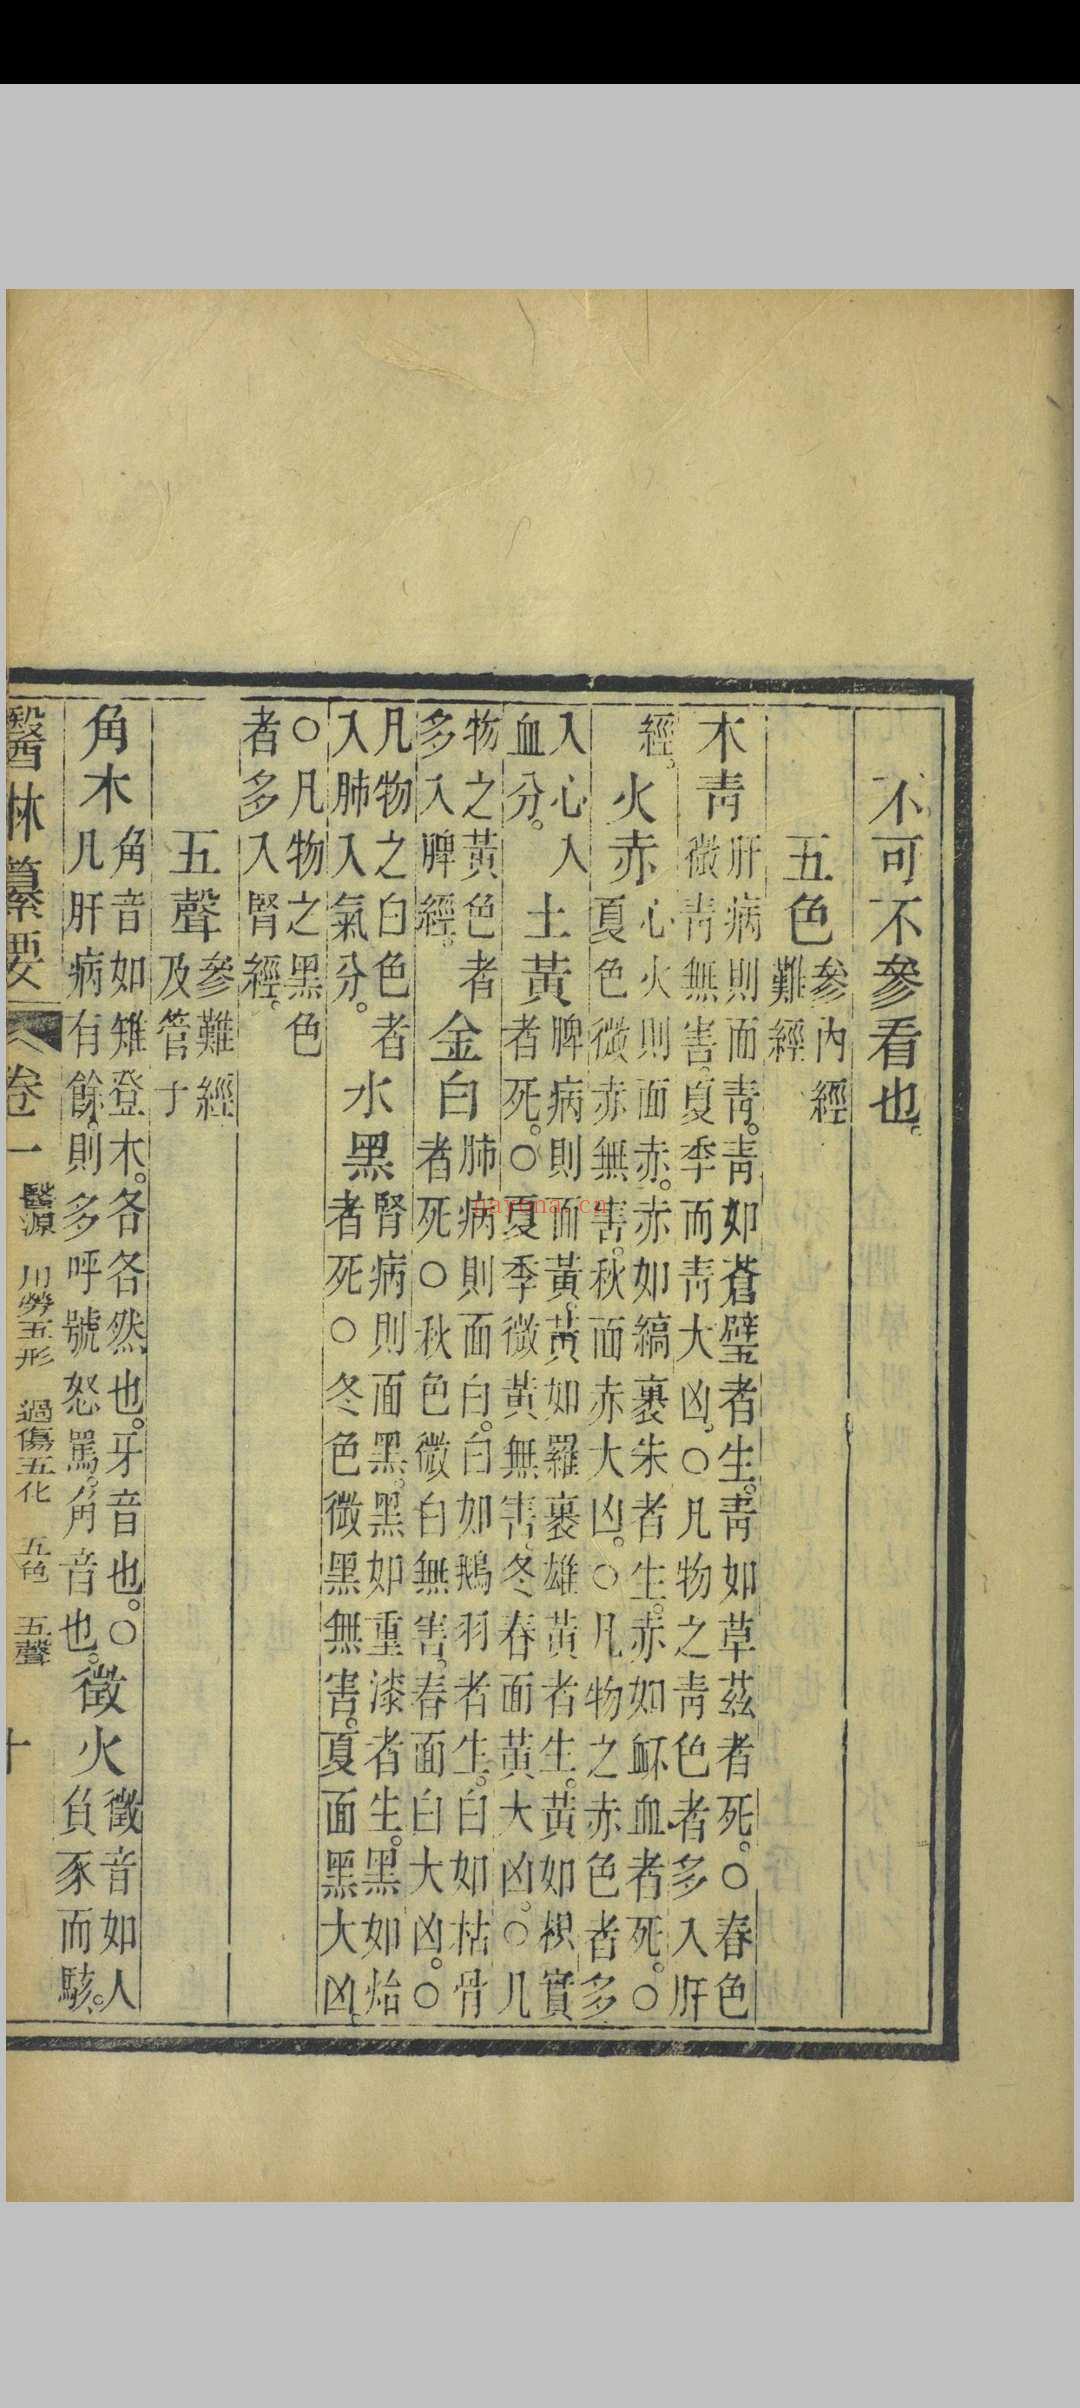 不可不參看也。
五色 參內經難經
木青 肝病則面青。青如蒼璧者生。青如草茲者死。○春色微青無害。夏季而青大凶。○凡物之青色者多入肝
經。 火赤 心火則面赤。赤如縞裹朱者生。赤如衃血者死。○夏色微赤無害。秋面赤大凶。○凡物之赤色者多
入心入血分。 土黃 脾病則面黃。黃如羅裹雄黃者生。黃如枳實者死。○夏季微黃無害。冬春面黃大凶。○凡
物之黃色者多入脾經。 金白 肺病則面白。白如鵝羽者生。白如枯骨者死○秋色微白無害。春面白大凶。○
凡物之白色者入肺入氣分。 水黑 腎病則面黑。黑如重漆者生。黑如炲者死○冬色微黑無害。夏面黑大凶
○凡物之黑色者多入腎經。
五聲 參難經及管子
角木 角音如雉登木。各各然也。牙音也。○凡肝病有餘。則多呼號怒罵。角音也。 徵火 徵音如人負豕而駭。
醫林纂要 卷一 醫源 川勞五形 過傷五化 五色 五聲 十